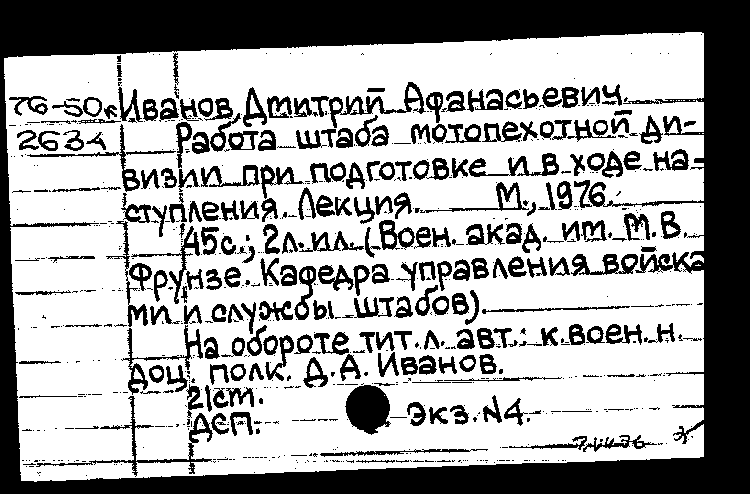 76-50к Иванов, Дмитрий Афанасьевич.
2634 Работа штаба мотопехотной ди-
визии при подготовке и в ходе на-
ступления. Лекция. М., 1976.
45с.; 2л. ил. (Воен. акад. им. М.В.
Фрунзе. Кафедра управления войска
ми и службы штабов).
На обороте тит. л. авт.: к. воен. н.
доц. полк. Д. А. Иванов.
21cm.
ДСП. Экз. №4.